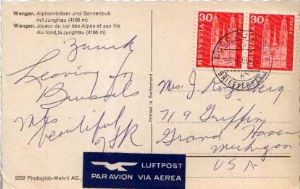 Wengen. Alphornbläser und Sennenbub
mit Jungfrau (4166 m)
Wengen. Joueur de cor des Alpes et son fils
Au fond, la Jungfrau (4166 m)
Zurich
Leaving
Brussels
beautiful
30
30
HELVETIA
HELVETIA
Mrs. J.
719 Griffin
Grand Haven
Michigan
USA
Printed in Switzerland
Photoglob-Wehrli AG
LUFTPOST
PAR AVION VIA AEREA